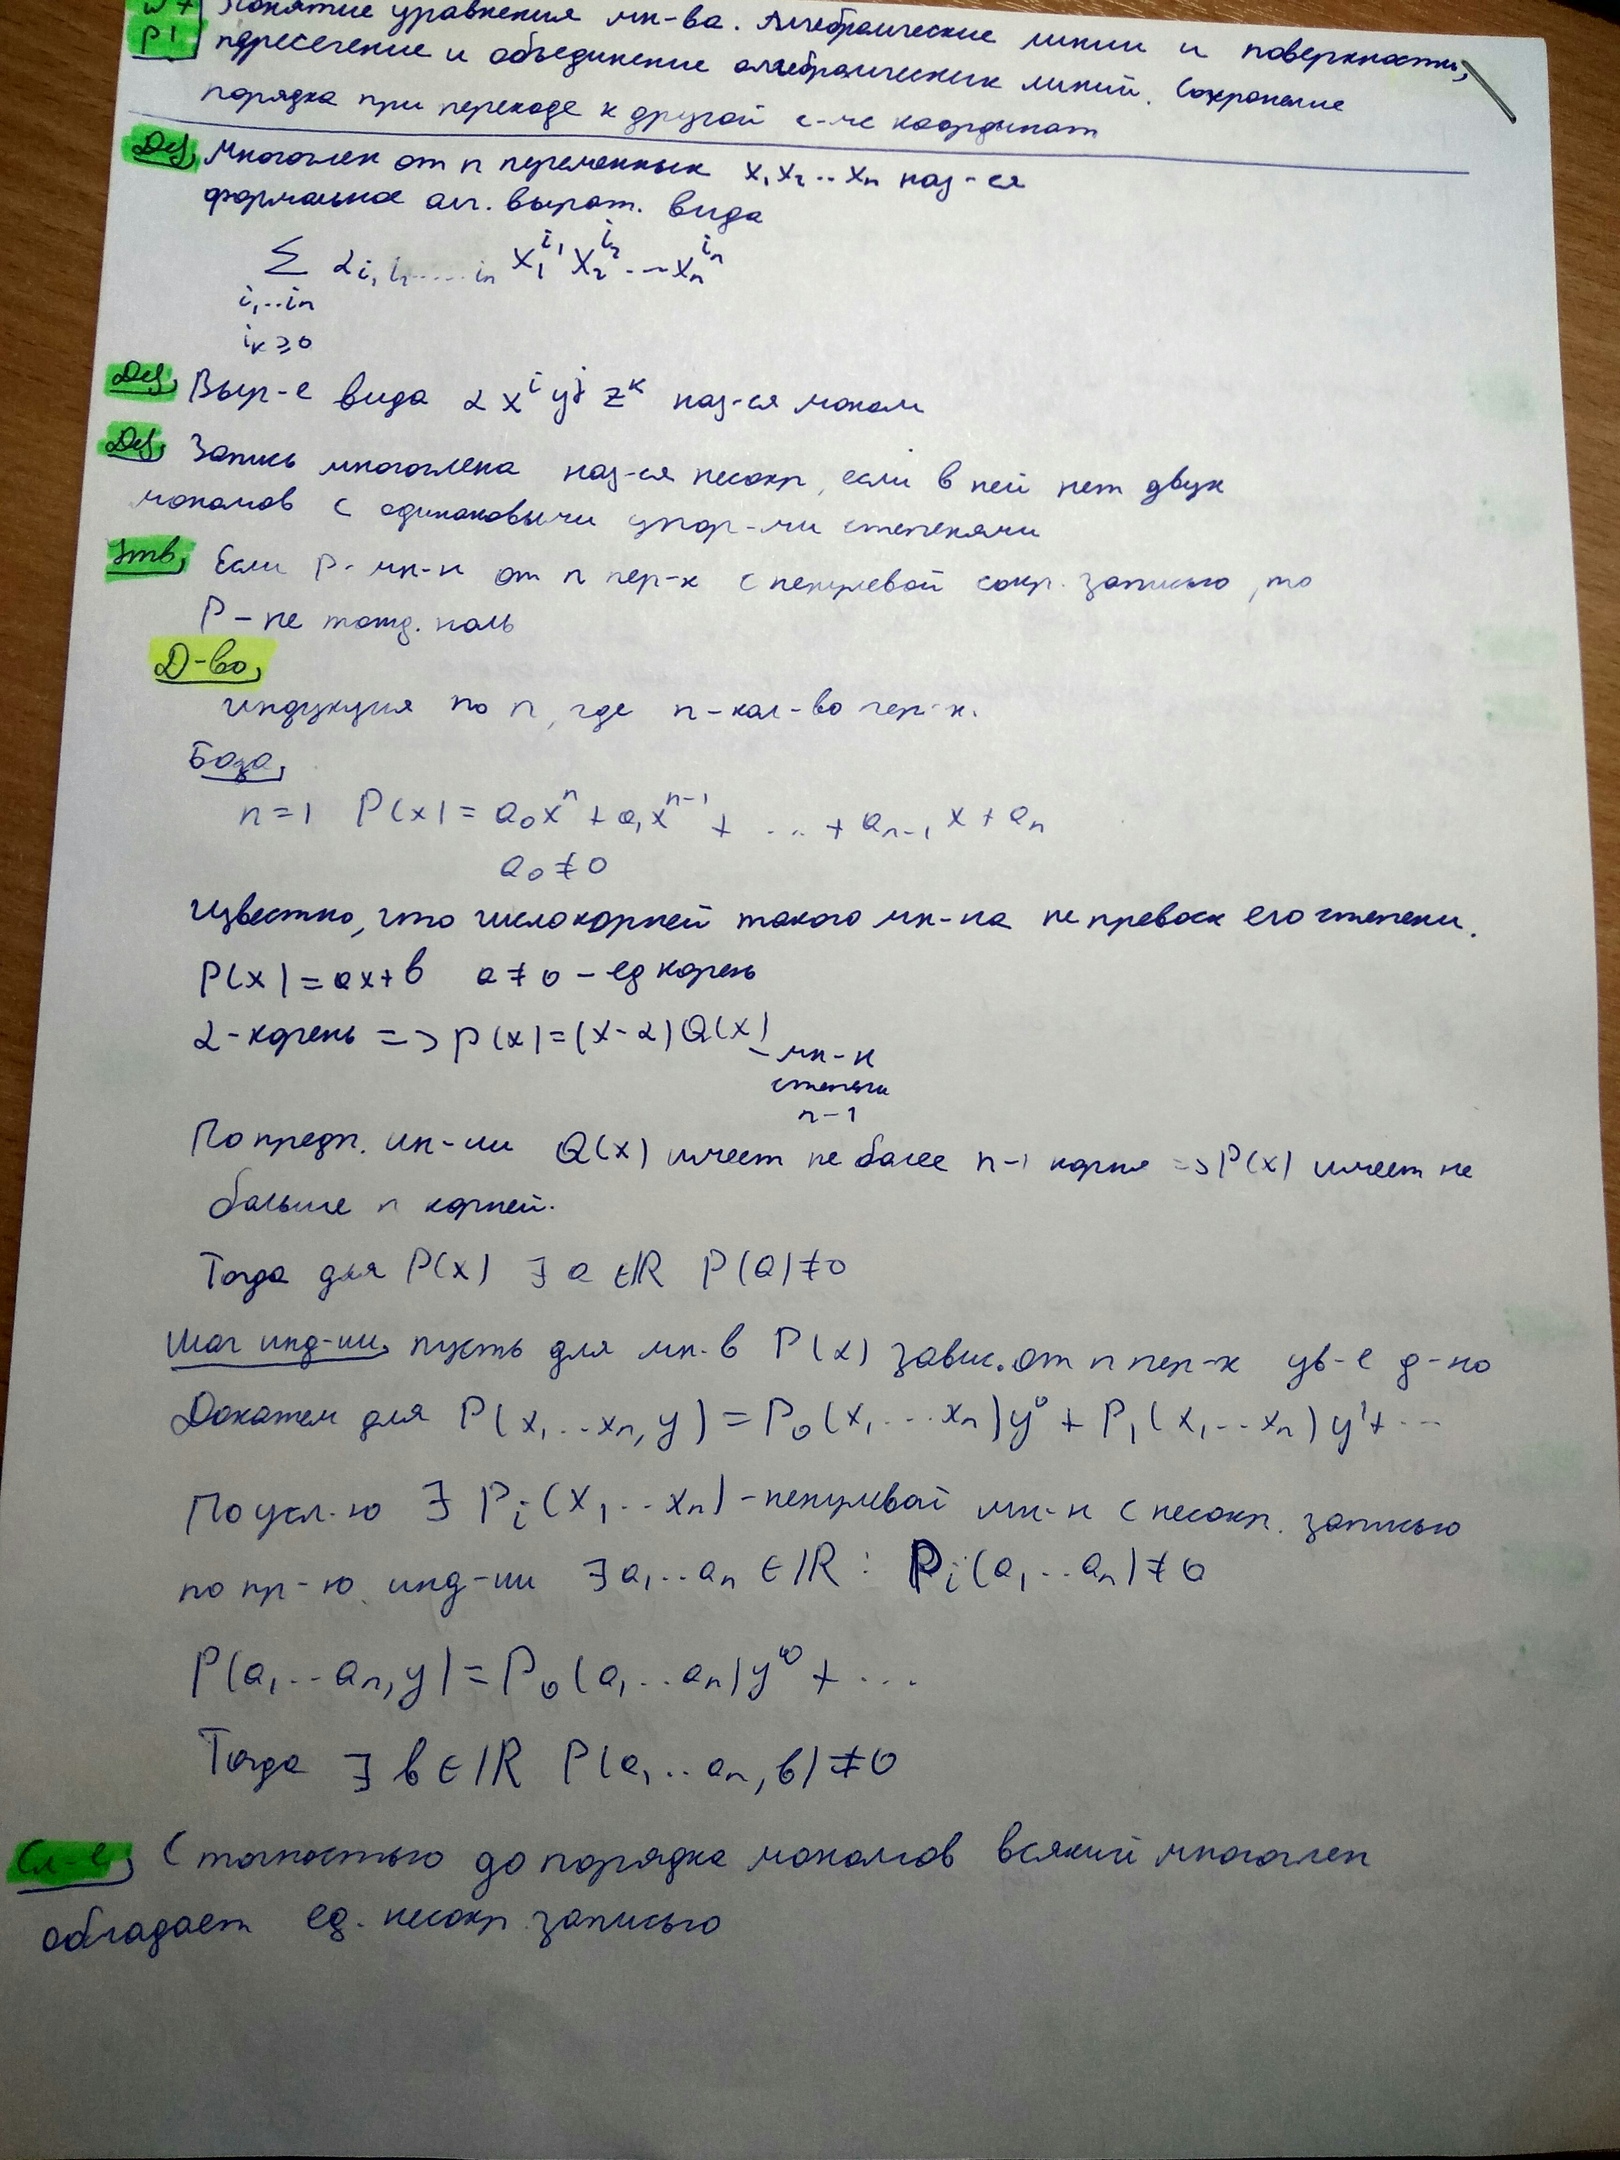 P1 Понятие уравнения мн-ва. Алгебраические линии и поверхности,
пересечение и объединение алгебраических линий. Сохранение
порядка при переходе к другой с-ме координат
Def, Многочлен от n переменных x₁x₂..xₙ наз-ся
формальное алг. выраж. вида
∑ α i₁ i₂ ...... iₙ x₁^i₁ x₂^i₂ ... xₙ^iₙ
i₁...iₙ
iₖ ≥ 0
Def, Выр-е вида α x^i y^j z^k наз-ся моном
Def, Запись многочлена наз-ся несокр, если в ней нет двух
мономов с одинаковыми упор-ми степенями
Утв, Если P - мн-н от n пер-х с ненулевой сокр. записью, то
P - не тожд. ноль
Д-во,
индукция по n, где n - кол-во пер-х.
База,
n=1 P(x) = a₀xⁿ + a₁xⁿ⁻¹ + ... + aₙ₋₁x + aₙ
a₀ ≠ 0
Известно, что число корней такого мн-на не превосх его степени.
P(x) = ax+b a ≠ 0 - ед корень
α - корень => P(x) = (x-α)Q(x)
- мн-н
степени
n-1
По предп. ин-ии Q(x) имеет не более n-1 корня => P(x) имеет не
больше n корней.
Тогда для P(x) ∃ a ∈ ℝ P(a) ≠ 0
Шаг инд-ии, пусть для мн-в P(x) завис. от n пер-х ув-е д-но
Докажем для P(x₁...xₙ, y) = P₀(x₁...xₙ)y⁰ + P₁(x₁...xₙ)y¹+ ...
По усл-ю ∃ Pᵢ(x₁...xₙ) - ненулевой мн-н с несокр. записью
по пр-ю инд-ии ∃ a₁..aₙ ∈ ℝ : Pᵢ(a₁..aₙ) ≠ 0
P(a₁..aₙ, y) = P₀(a₁..aₙ)y⁰ + ...
Тогда ∃ b ∈ ℝ P(a₁..aₙ, b) ≠ 0
Сл-е, С точностью до порядка мономов всякий многочлен
обладает ед. несокр. записью